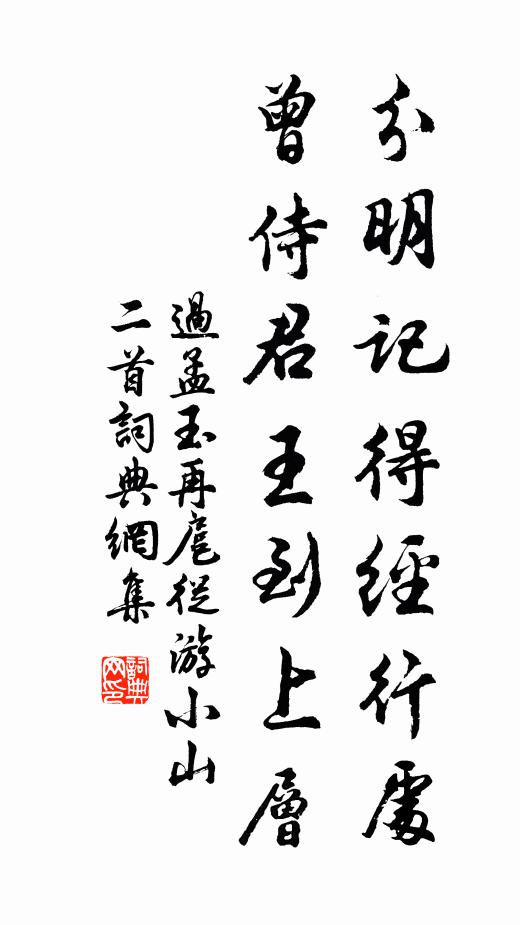 分明記得經行處
曾侍君王到上層
過孟玉再扈從游小山
二首詞典網集
詞典網印